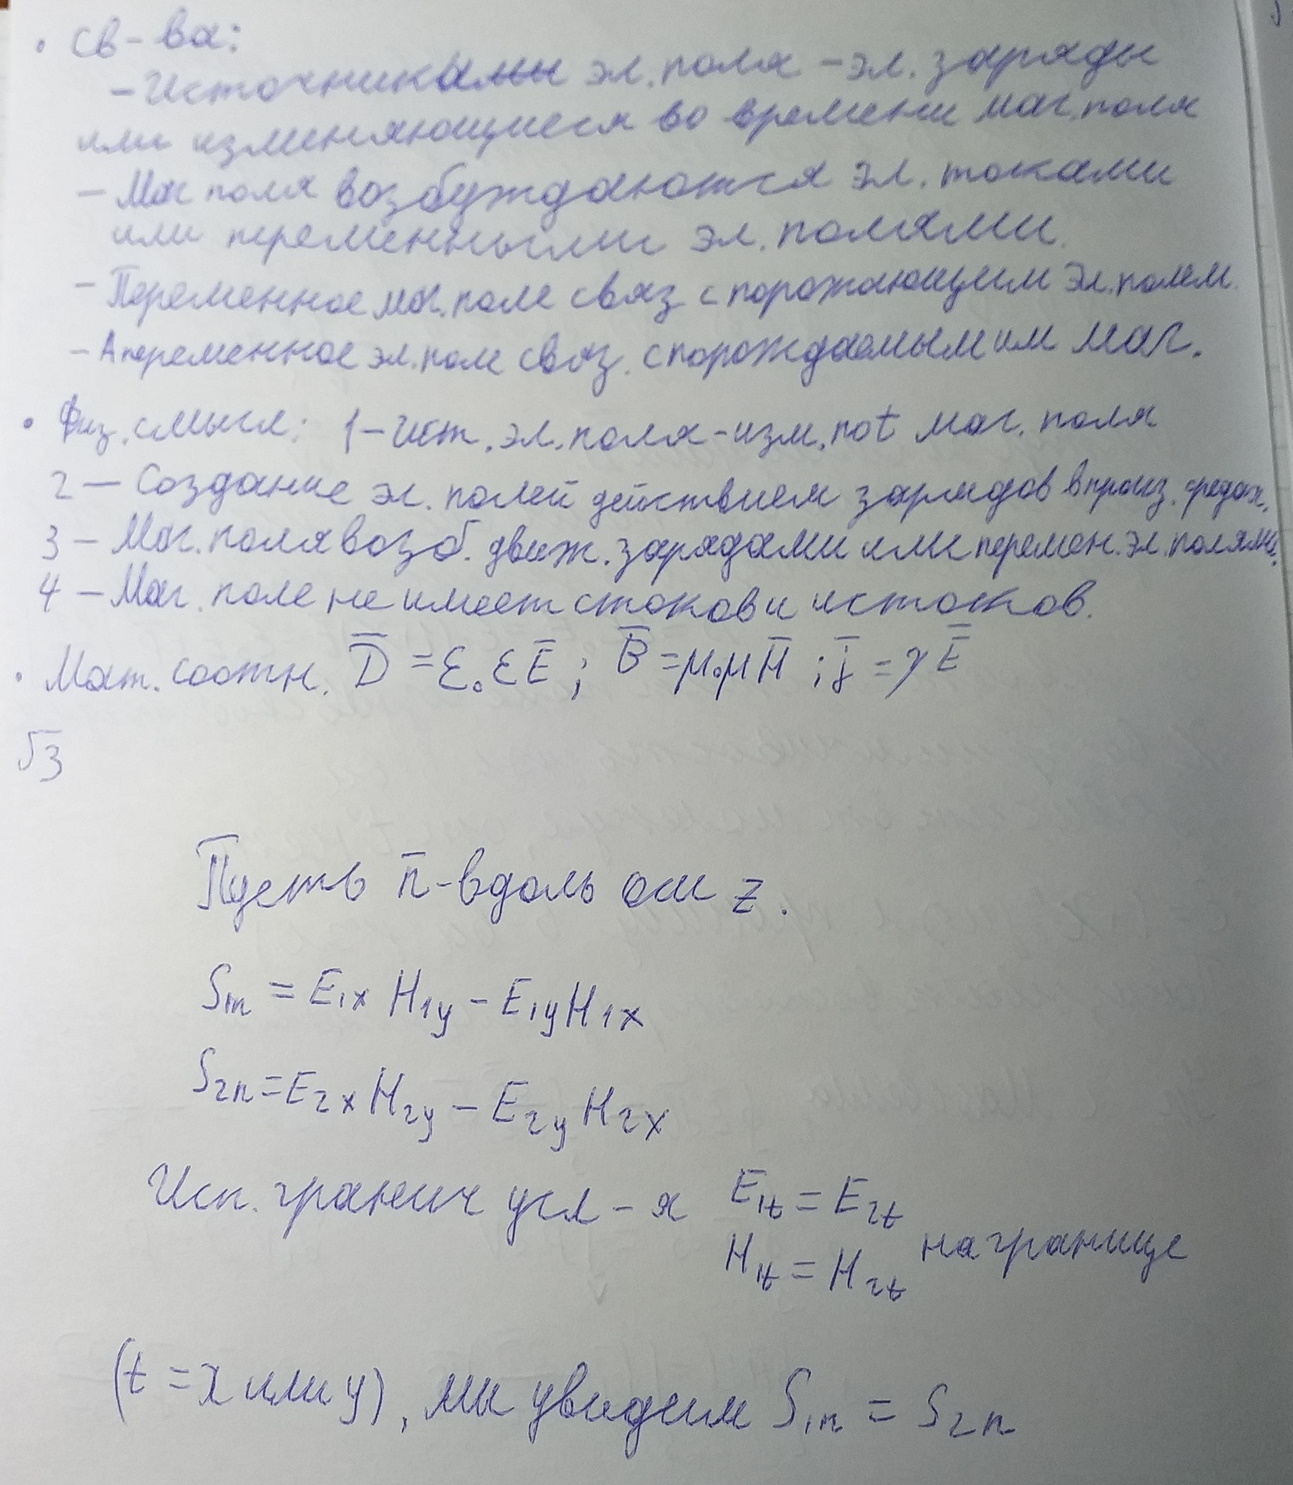 • Св-ва:
- Источниками эл. поля - эл. заряды
или изменяющиеся во времени маг. поля
- Маг поля возбуждаются эл. токами
или переменными эл. полями.
- Переменное маг. поле связ с порожающим эл. полем.
- А переменное эл. поле связ. с порождаемым им маг.
• Физ. смысл: 1 - Ист. эл. поля - изм. по t маг. поля
2 - Создание эл. полей действием зарядов в произ. средах.
3 - Маг. поля возб. движ. зарядами или перемен. эл. полями.
4 - Маг. поле не имеет стоков и истоков.
• Мат. соотн. D̅ = ε₀εE̅ ; B̅ = μ₀μH̅ ; j̅ = γE̅
√3
Пусть n̅ - вдоль оси z.
S₁ₙ = E₁ₓ H₁y - E₁y H₁ₓ
S₂ₙ = E₂ₓ H₂y - E₂y H₂ₓ
Исп. гранич усл - я E₁t = E₂t
H₁t = H₂t на границе
(t = x или y), мы увидим S₁ₙ = S₂ₙ